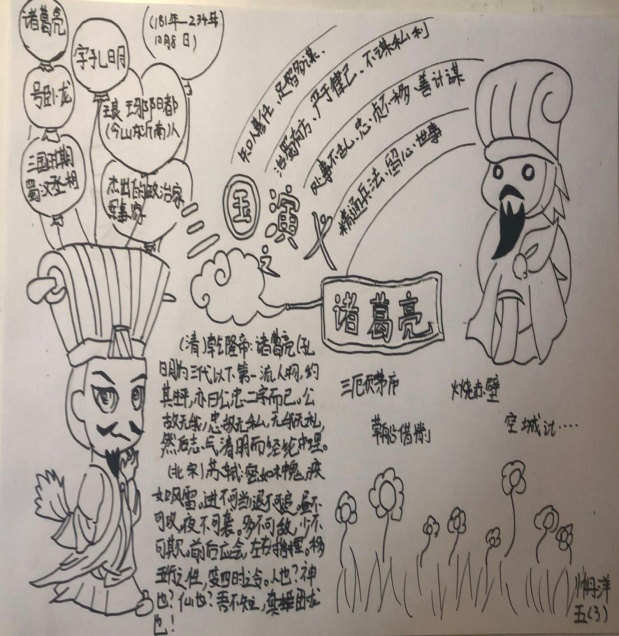 诸葛亮
字孔明
(181年—234年
10月8日)
号卧龙
琅琊阳都
(今山东沂南)人
三国时期
蜀汉丞相
杰出的政治家
军事家
足智多谋、
治蜀有方、严于律己、不谋私利
处事不乱、忠贞不移、善计谋
精通兵法、留心世事
国
演
义
之
诸葛亮
(清)乾隆帝:诸葛亮(孔
明)为三代以下第一流人物,约
其生平,亦曰公忠二字而已。公
故无我,忠故无私,无我无私,
然后志气清明而经纶中理。
(北宋)苏轼:密如神鬼,疾
如风雷,进不可当,退不可追,昼不
可攻,夜不可袭。多不可敌,少不
可欺,前后应会,左右指挥,移
五行之性,变四时之令。人也?神
也?仙也?吾不知之,真卧龙
也!
三顾茅庐
火烧赤壁
草船借箭
空城计····
五(3)